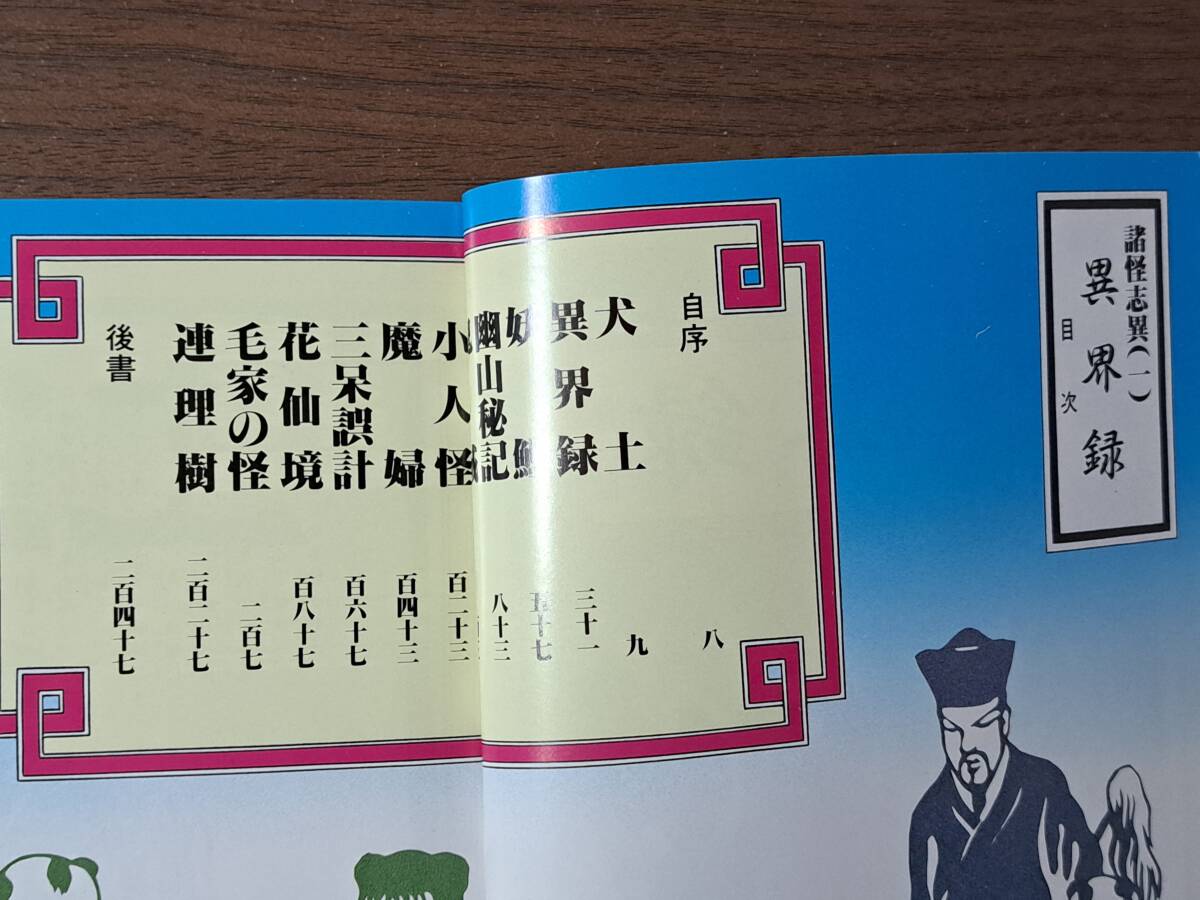 諸怪志異(一)
異界録
目次
自序 八
犬士 九
異界録 三十一
妖 五十七
幽山秘記 八十三
小人怪 百二十三
魔婦 百四十三
三呆誤計 百六十七
花仙境 百八十七
毛家の怪 二百七
連理樹 二百二十七
後書 二百四十七